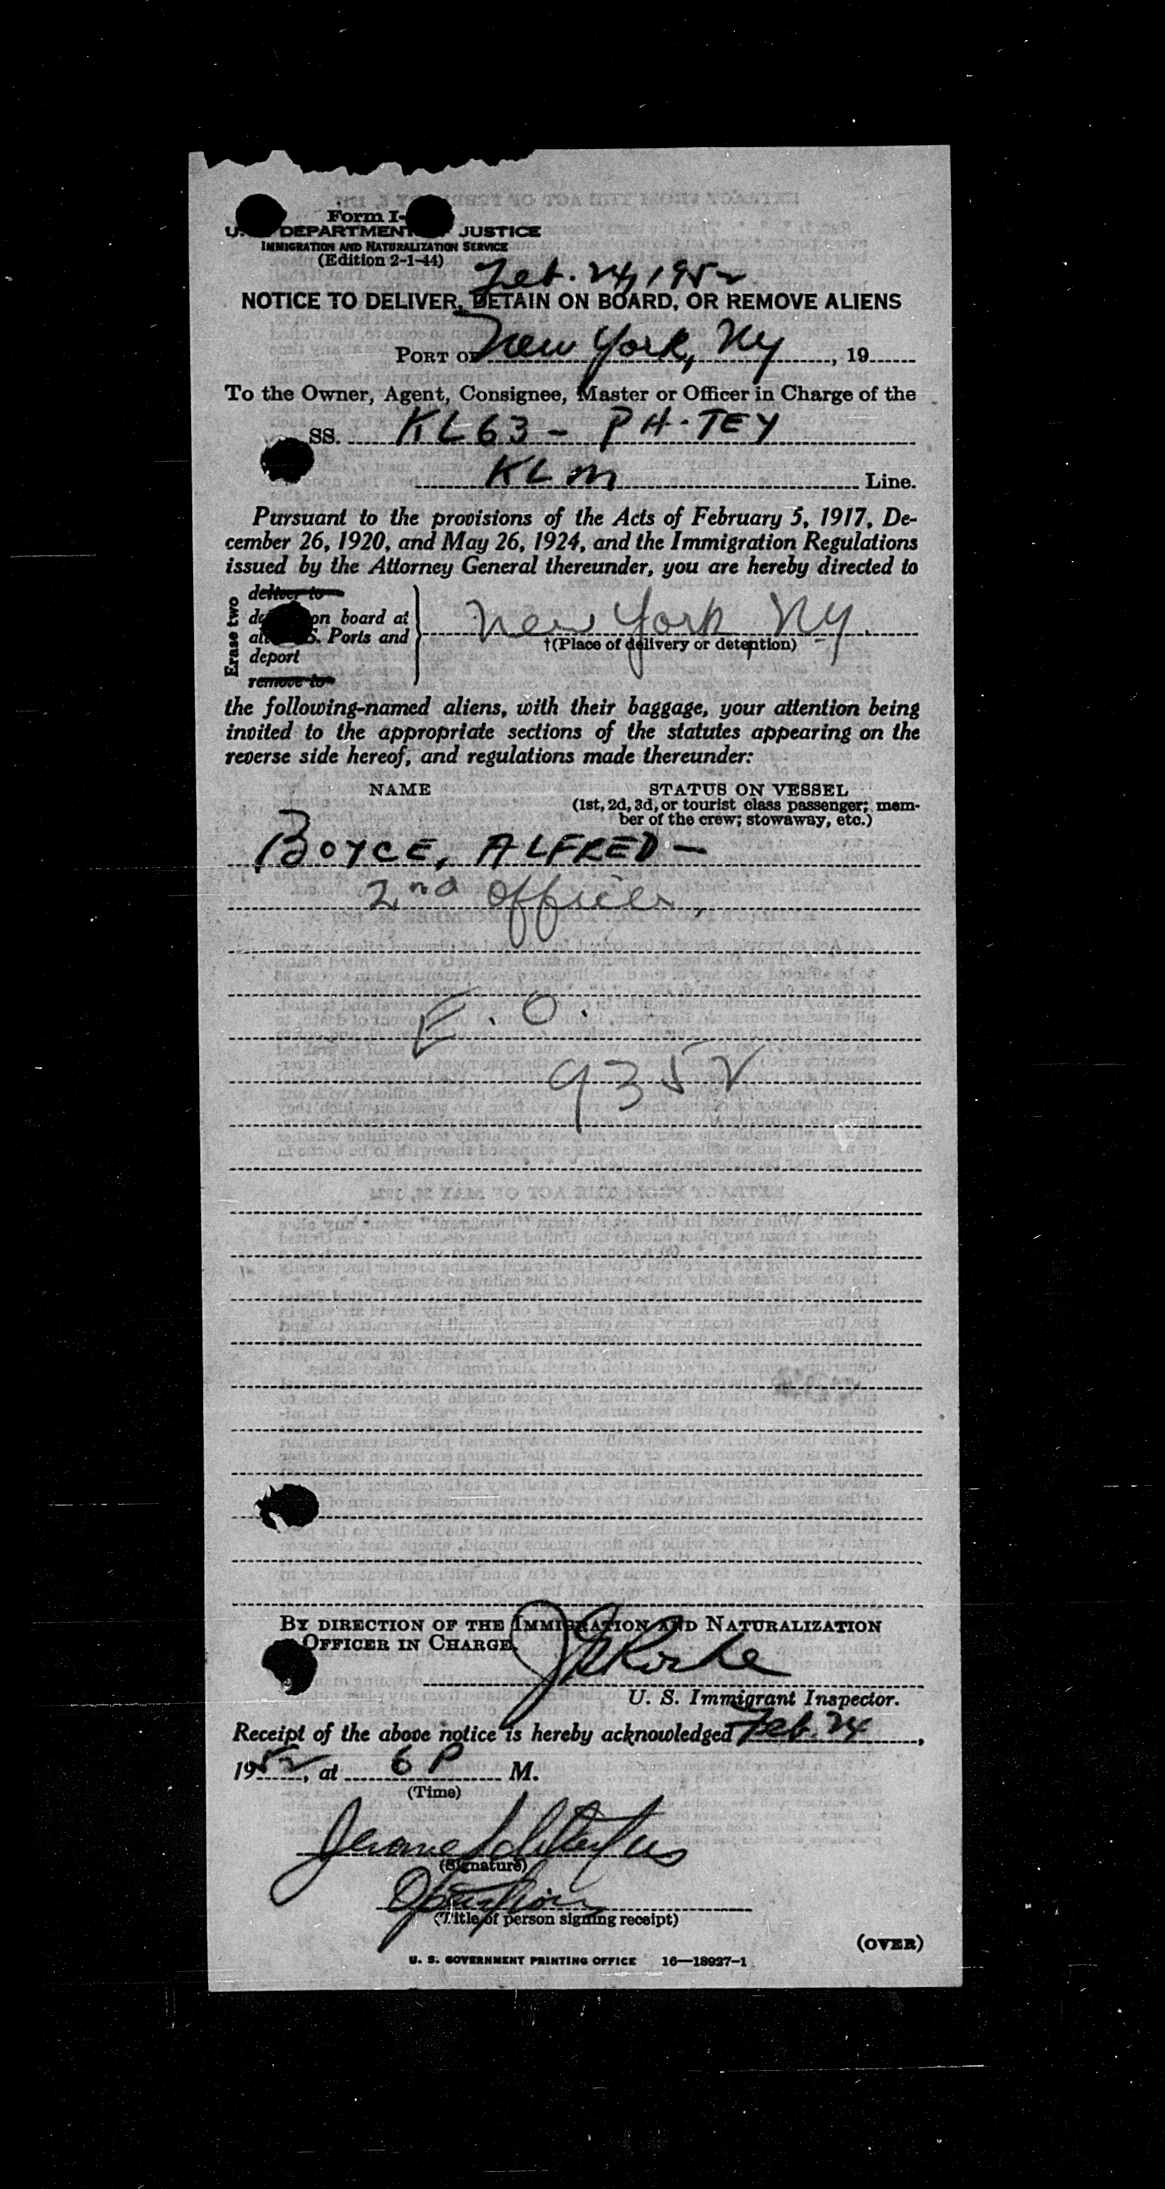 Form I-
U. DEPARTMENT JUSTICE
IMMIGRATION AND NATURALIZATION SERVICE
(Edition 2-1-44)
Feb. 24, 1952
NOTICE TO DELIVER, DETAIN ON BOARD, OR REMOVE ALIENS
PORT OF New York, NY, 19
To the Owner, Agent, Consignee, Master or Officer in Charge of the
SS. KL63 - PH-TEY
KLM Line.
Pursuant to the provisions of the Acts of February 5, 1917, De-
cember 26, 1920, and May 26, 1924, and the Immigration Regulations
issued by the Attorney General thereunder, you are hereby directed to
Erase two
deliver to
on board at
Ports and
deport
remove to
New York NY.
†(Place of delivery or detention)
the following-named aliens, with their baggage, your attention being
invited to the appropriate sections of the statutes appearing on the
reverse side hereof, and regulations made thereunder:
NAME STATUS ON VESSEL
(1st, 2d, 3d, or tourist class passenger; mem-
ber of the crew; stowaway, etc.)
BOYCE, ALFRED -
2nd Officer,
E. O.
9352
BY DIRECTION OF THE IMMIGRATION AND NATURALIZATION
OFFICER IN CHARGE.
U. S. Immigrant Inspector.
Receipt of the above notice is hereby acknowledged Feb. 24,
1952, at 6 P M.
(Time)
Jerome
(Signature)
(Title of person signing receipt)
(OVER)
U. S. GOVERNMENT PRINTING OFFICE 16—18927-1